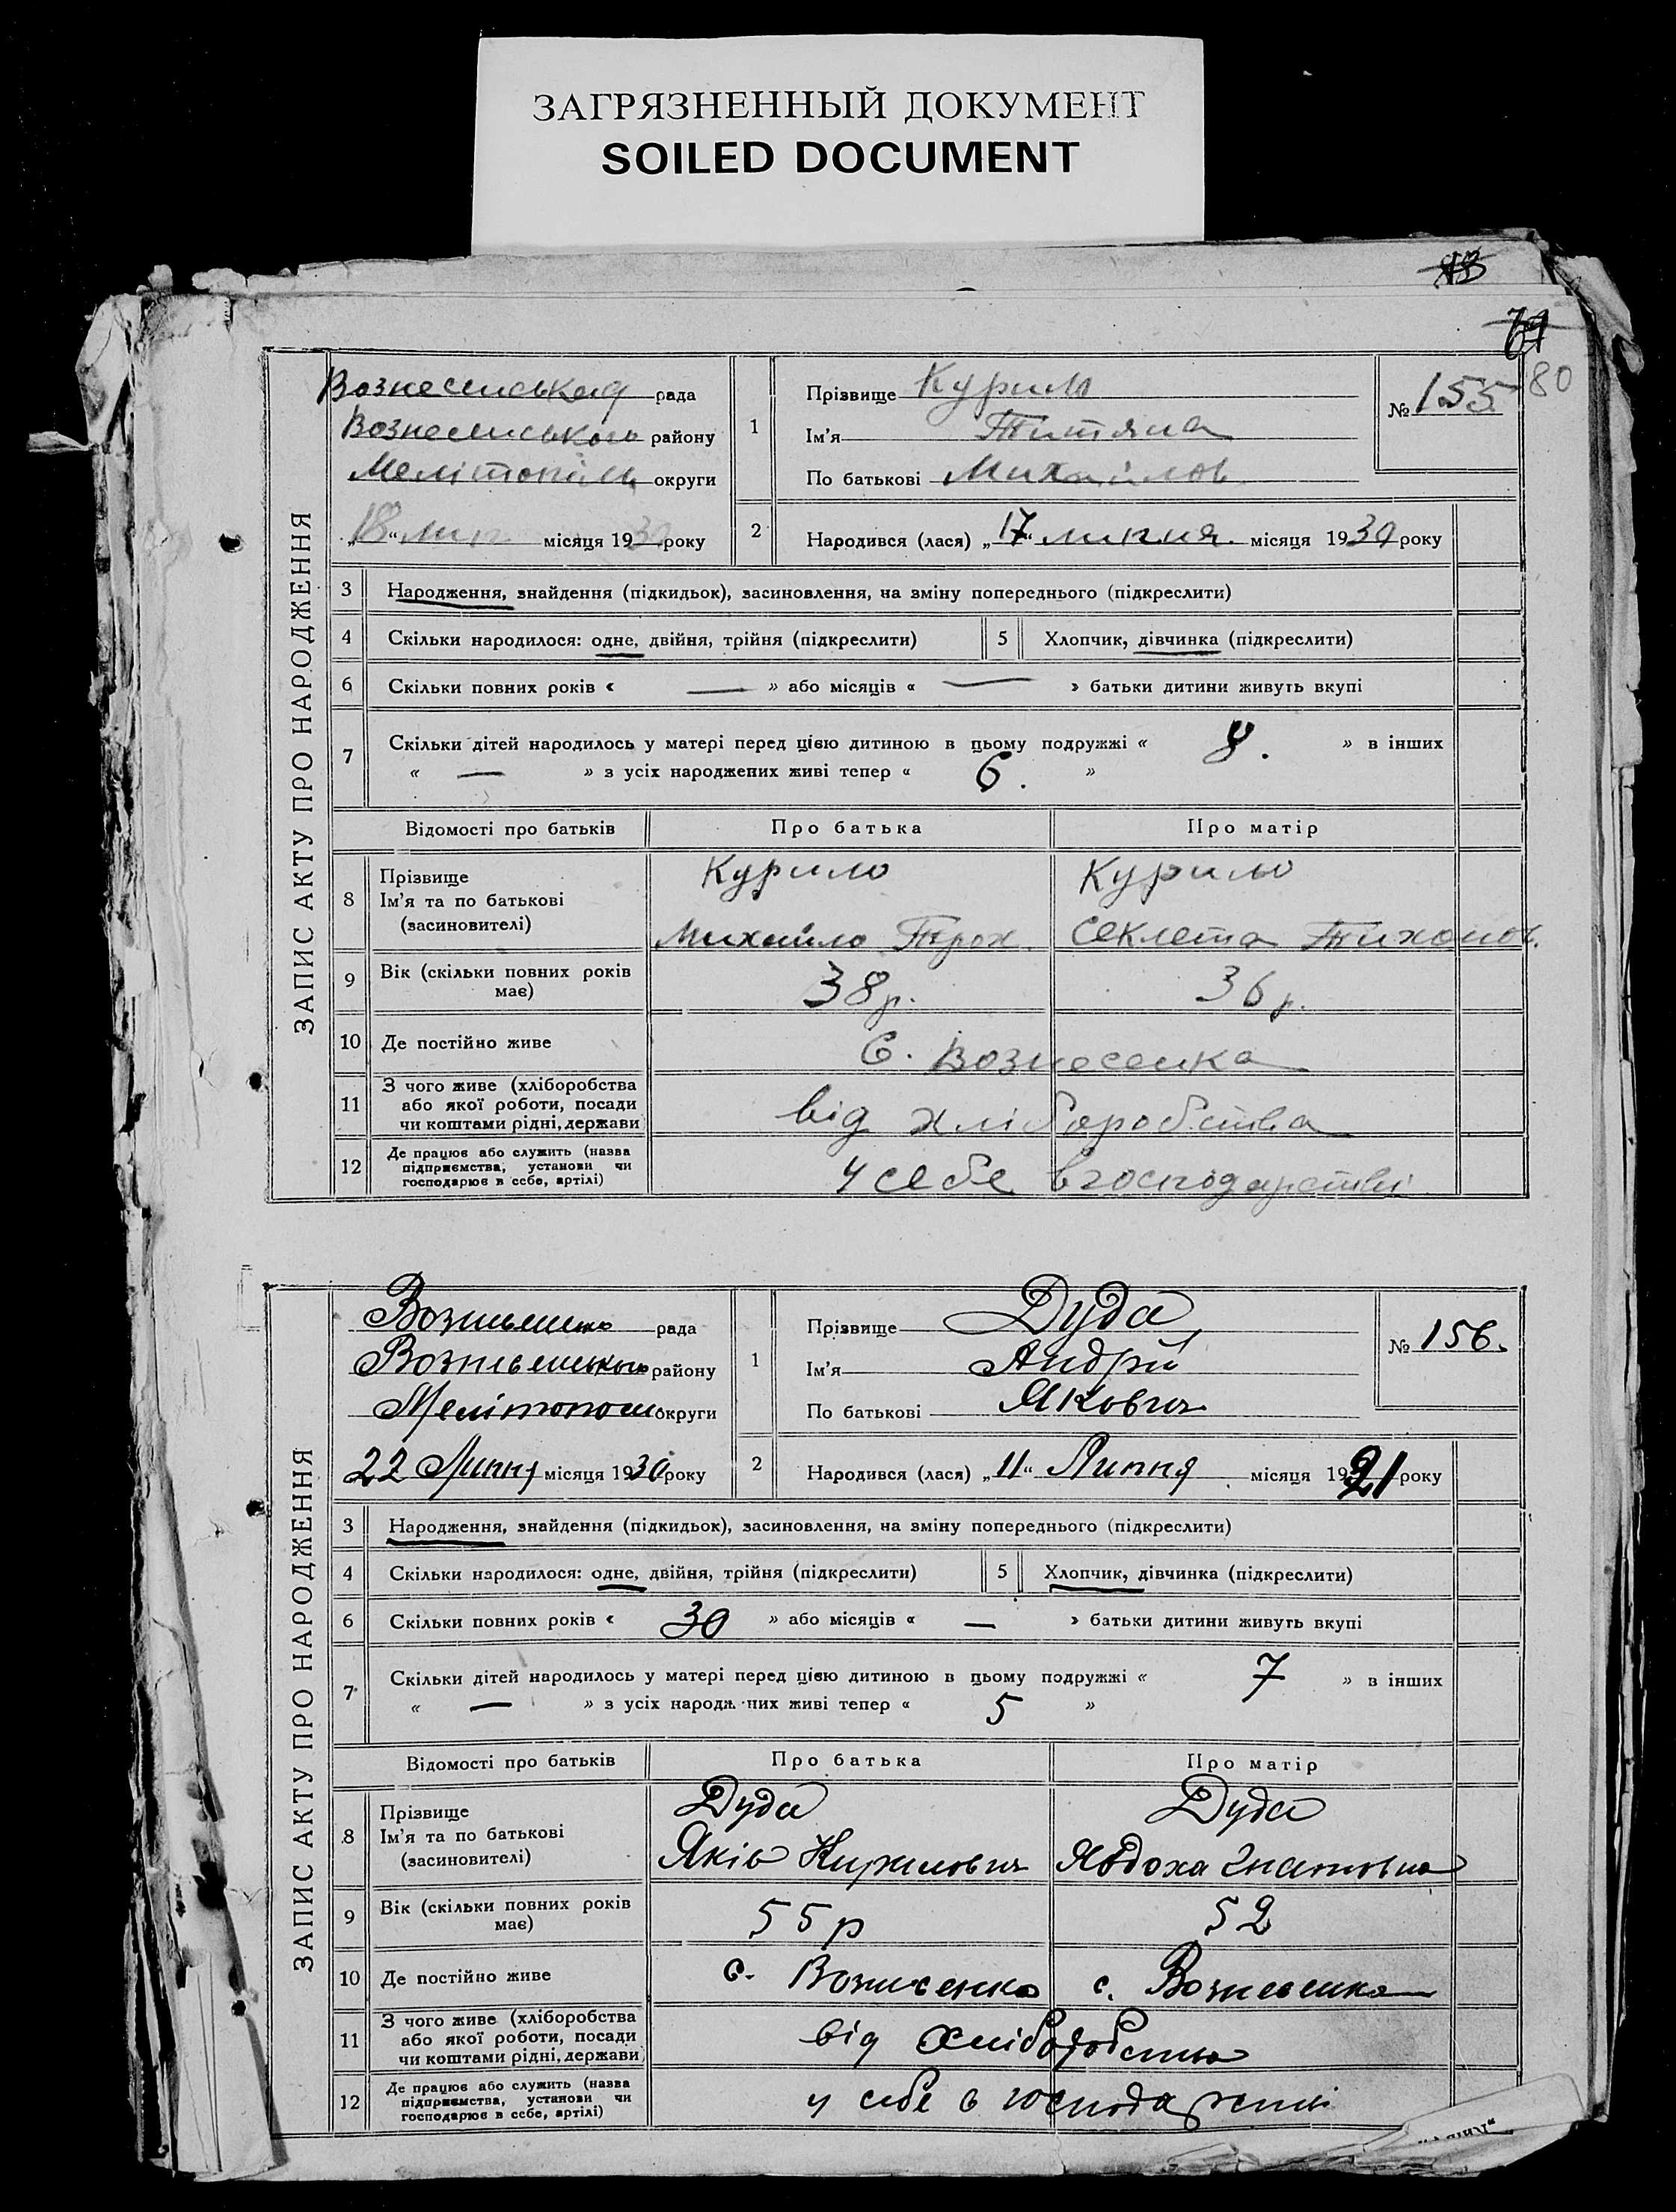 ЗАГРЯЗНЕННЫЙ ДОКУМЕНТ
SOILED DOCUMENT
80
ЗАПИС АКТУ ПРО НАРОДЖЕННЯ
Вознесенська рада
Вознесенського району
Мелітопіль округи
„18“ лип місяця 1930 року
1
Прізвище Курило
Ім'я Титяна
По батькові Михайлов
№ 155
2
Народився (лася) „17“ липня місяця 1930 року
3 Народження, знайдення (підкидьок), засиновлення, на зміну попереднього (підкреслити)
4 Скільки народилося: одне, двійня, трійня (підкреслити)
5 Хлопчик, дівчинка (підкреслити)
6 Скільки повних років « — » або місяців « — » батьки дитини живуть вкупі
7 Скільки дітей народилось у матері перед цією дитиною в цьому подружжі « 8. » в інших
« — » з усіх народжених живі тепер « 6. »
Відомості про батьків Про батька Про матір
8 Прізвище
Ім'я та по батькові
(засиновителі)
Курило
Михайло Трох.
Курило
Секлета Тихонов.
9 Вік (скільки повних років
має)
38 р. 36 р.
10 Де постійно живе С. Вознесенка
11 З чого живе (хліборобства
або якої роботи, посади
чи коштами рідні, держави
від хліборобства
12 Де працює або служить (назва
підприємства, установи чи
господарює в себе, артілі)
у себе в господарстві
ЗАПИС АКТУ ПРО НАРОДЖЕННЯ
рада
району
округи
22 Липня місяця 1930 року
1
Прізвище Дуда
Ім'я Андрій
По батькові Якович
№ 156.
2
Народився (лася) „11“ Липня місяця 1921 року
3 Народження, знайдення (підкидьок), засиновлення, на зміну попереднього (підкреслити)
4 Скільки народилося: одне, двійня, трійня (підкреслити)
5 Хлопчик, дівчинка (підкреслити)
6 Скільки повних років « 30 » або місяців « — » батьки дитини живуть вкупі
7 Скільки дітей народилось у матері перед цією дитиною в цьому подружжі « 7 » в інших
« — » з усіх народж них живі тепер « 5 »
Відомості про батьків Про батька Про матір
8 Прізвище
Ім'я та по батькові
(засиновителі)
Дуда
Яків Кирилович
Дуда
Явдоха Гнатовна
9 Вік (скільки повних років
має)
55 р 52
10 Де постійно живе с. Вознесенка с. Вознесенка
11 З чого живе (хліборобства
або якої роботи, посади
чи коштами рідні, держави
від хліборобства
12 Де працює або служить (назва
підприємства, установи чи
господарює в себе, артілі)
у себе в господарстві